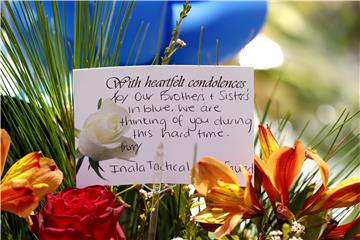 With heartfelt condolences
for Our Brothers & Sisters
in blue. We are
thinking of you during
this hard time.
Inala Tactical